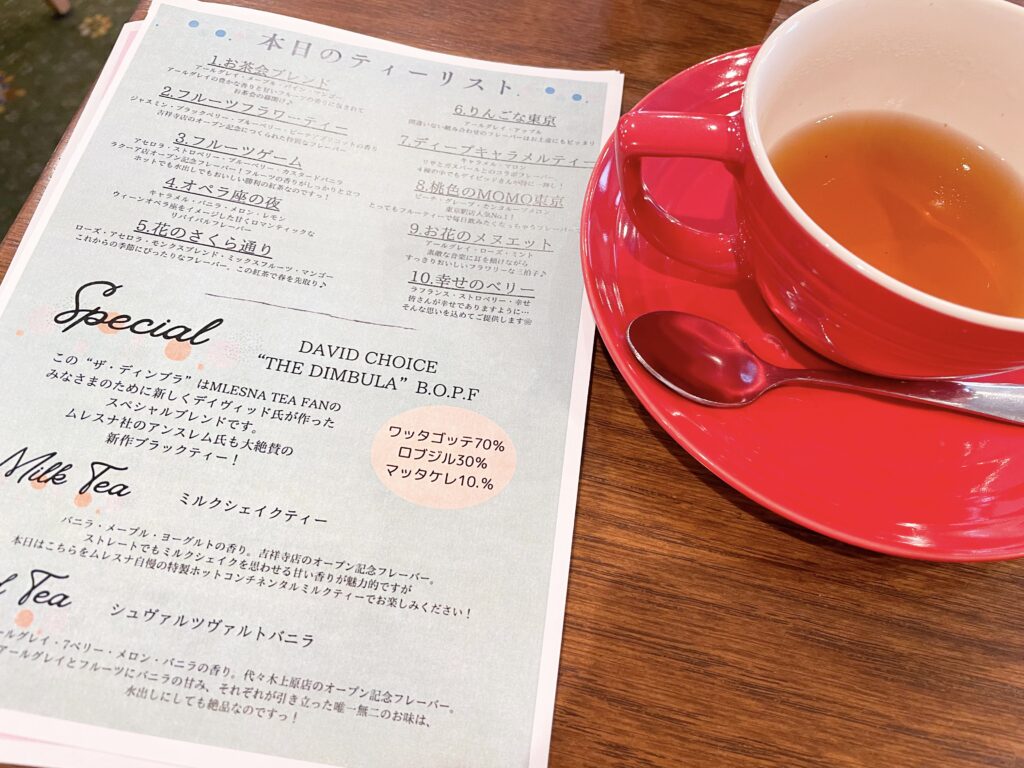 本日のティーリスト
1.お茶会ブレンド
アールグレイ・メープル・パイン・マンゴー
アールグレイの豊かな香りと甘いフルーツの香りに包まれて
お茶会の幕開け♪
2.フルーツフラワーティー
ジャスミン・ブラックベリー・ブルーベリー・ピーチアプリコットの香り
吉祥寺店のオープン記念につくられた特別なフレーバー
3.フルーツゲーム
アセロラ・ストロベリー・ブルーベリー・カスタードバニラ
ラクーア店オープン記念フレーバー！フルーツの香りがしっかりと立つ
ホットでも水出しでもおいしい勝利の紅茶なのですっ！
4.オペラ座の夜
キャラメル・バニラ・メロン・レモン
ウィーンオペラ座をイメージした甘くロマンティックな
リバイバルフレーバー
5.花のさくら通り
ローズ・アセロラ・モンクスブレンド・ミックスフルーツ・マンゴー
これからの季節にぴったりなフレーバー、この紅茶で春を先取り♪
6.りんごな東京
アールグレイ・アップル
間違いない組み合わせのフレーバーはお土産にもピッタリ
7.ディープキャラメルティー
キャラメル・バニラ
リサとガスパールとのコラボフレーバー
4種の中でもデイビッドさんが特に一推し！
8.桃色のMOMO東京
ピーチ・グレープ・モンクスフルーツメロン
東京駅店人気No.1！
とってもフルーティーで毎日飲みたくなっちゃうフレーバー
9.お花のメヌエット
アールグレイ・ローズ・ミント
素敵な音楽に耳を傾けながら
すっきりおいしいフラワリーな三拍子♪
10.幸せのベリー
ラフランス・ストロベリー・幸せ
皆さんが幸せでありますように…
そんな思いを込めてご提供します
Special
DAVID CHOICE
“THE DIMBULA” B.O.P.F
この“ザ・ディンブラ”はMLESNA TEA FANの
みなさまのために新しくデイヴィッド氏が作った
スペシャルブレンドです。
ムレスナ社のアンスレム氏も大絶賛の
新作ブラックティー！
ワッタゴッテ70%
ロブジル30%
マッタケレ10.%
Milk Tea
ミルクシェイクティー
バニラ・メープル・ヨーグルトの香り。吉祥寺店のオープン記念フレーバー。
ストレートでもミルクシェイクを思わせる甘い香りが魅力的ですが
本日はこちらをムレスナ自慢の特製ホットコンチネンタルミルクティーでお楽しみください！
Tea
シュヴァルツヴァルトバニラ
ールグレイ・7ベリー・メロン・バニラの香り。代々木上原店のオープン記念フレーバー。
アールグレイとフルーツにバニラの甘み、それぞれが引き立った唯一無二のお味は、
水出しにしても絶品なのですっ！